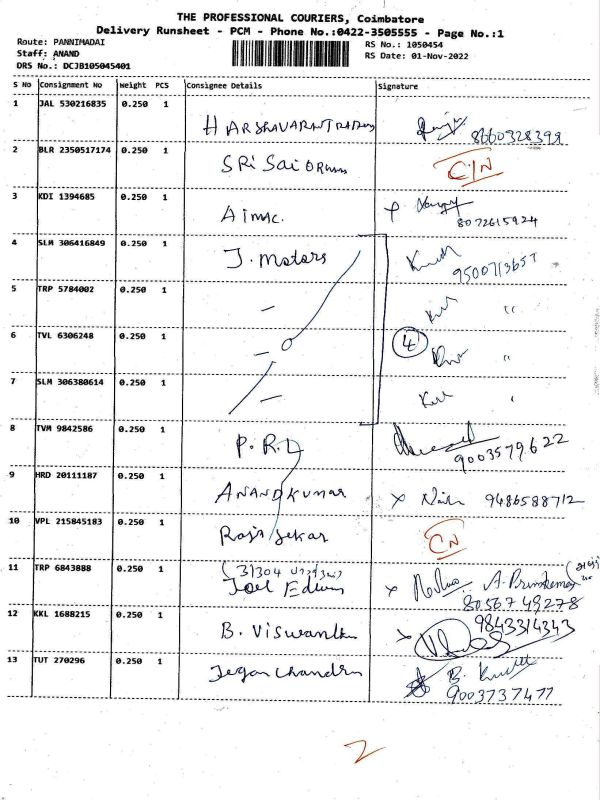 THE PROFESSIONAL COURIERS, Coimbatore
Delivery Runsheet - PCM - Phone No.:0422-3505555 - Page No.:1
Route: PANNIMADAI
RS No.: 1050454
Staff: ANAND
RS Date: 01-Nov-2022
DRS No.: DCJB105045401
S No Consignment No Weight PCS Consignee Details Signature
1 JAL 530216835 0.250 1
8660328398
2 BLR 2350517174 0.250 1 SRi Sai
C/N
3 KDI 1394685 0.250 1
8072615924
4 SLM 306416849 0.250 1 J. Motors
9500713657
5 TRP 5784002 0.250 1 - "
6 TVL 6306248 0.250 1 - 4 "
7 SLM 306380614 0.250 1 - "
8 TVM 9842586 0.250 1 P.R.L
9003579622
9 HRD 20111187 0.250 1 ANANDKUMAR x 9486588712
10 VPL 215845183 0.250 1 Raja Sekar CN
11 TRP 6843888 0.250 1 (31304
Joel Edwin x
8056749278
12 KKL 1688215 0.250 1 B. Viswanthan x 9843314343
13 TUT 270296 0.250 1 Jegan Chandra B.
9003737477
2